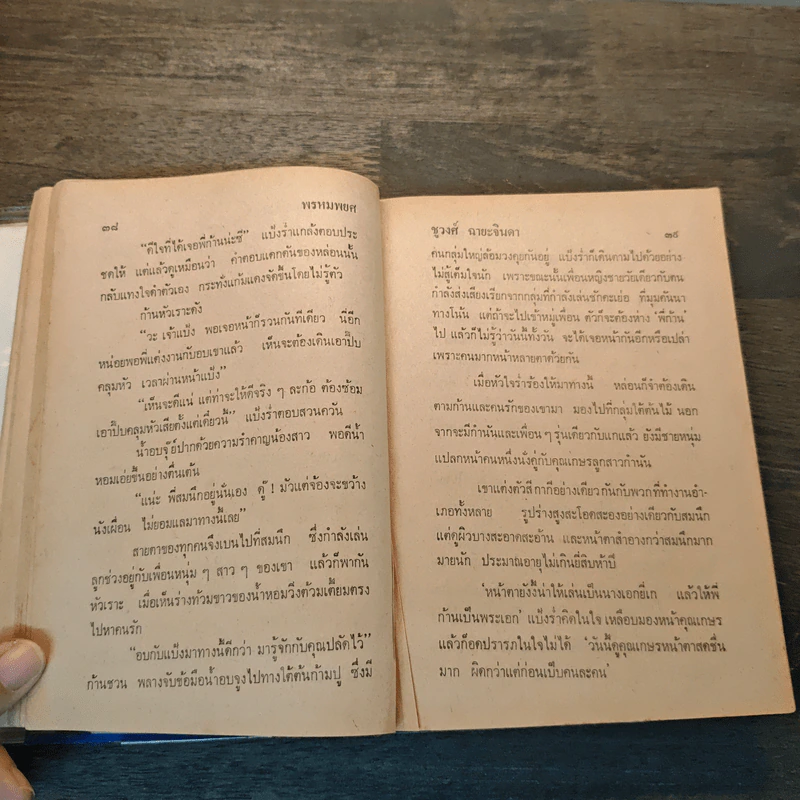 พรหมพยศ
๓๘
“ดีใจที่ได้เจอพี่ก้านน่ะซี” แป้งร่ำแกล้งตอบประ
ชดให้ แต่แล้วดูเหมือนว่า คำตอบแดกดันของหล่อนนั้น
กลับแทงใจดำตัวเอง กระทั่งแก้มแดงจัดขึ้นโดยไม่รู้ตัว
ก้านหัวเราะดัง
“วะ เจ้าแป้ง พอเจอหน้าก็รวนกันทีเดียว นี่อีก
หน่อยพอพี่แต่งงานกับอบเขาแล้ว เห็นจะต้องเดินเอาปี๊บ
คลุมหัว เวลาผ่านหน้าแป้ง”
“เห็นจะดีแน่ แต่ท่าจะให้ดีจริง ๆ ละก้อ ต้องซ้อม
เอาปี๊บคลุมหัวเสียตั้งแต่เดี๋ยวนี้” แป้งร่ำตอบสวนควัน
น้ำอบจุ๊ย์ปากด้วยความรำคาญน้องสาว พอดีน้ำ
หอมเอ่ยขึ้นอย่างตื่นเต้น
“แน่ะ พี่สมนึกอยู่นั่นเอง ดู๊ ! มัวแต่จ้องจะขว้าง
นังเผื่อน ไม่ยอมแลมาทางนี้เลย”
สายตาของทุกคนจึงเบนไปที่สมนึก ซึ่งกำลังเล่น
ลูกช่วงอยู่กับเพื่อนหนุ่ม ๆ สาว ๆ ของเขา แล้วก็พากัน
หัวเราะ เมื่อเห็นร่างท้วมขาวของน้ำหอมวิ่งต้วมเตี้ยมตรง
ไปหาคนรัก
“อบกับแป้งมาทางนี้ดีกว่า มารู้จักกับคุณปลัดไว้”
ก้านชวน พลางจับข้อมือน้ำอบจูงไปทางใต้ต้นก้ามปู ซึ่งมี
ชูวงศ์ ฉายะจินดา
๓๙
คนกลุ่มใหญ่ล้อมวงคุยกันอยู่ แป้งร่ำก็เดินตามไปด้วยอย่าง
ไม่สู้เต็มใจนัก เพราะขณะนั้นเพื่อนหญิงชายวัยเดียวกับตน
กำลังส่งเสียงเรียกจากกลุ่มที่กำลังเล่นชักคะเย่อ ที่มุมคันนา
ทางโน้น แต่ถ้าจะไปเข้าหมู่เพื่อน ตัวก็จะต้องห่าง ‘พี่ก้าน’
ไป แล้วก็ไม่รู้ว่าวันนี้ทั้งวัน จะได้เจอหน้ากันอีกหรือเปล่า
เพราะคนมากหน้าหลายตาด้วยกัน
เมื่อหัวใจร่ำร้องให้มาทางนี้ หล่อนก็จำต้องเดิน
ตามก้านและคนรักของเขามา มองไปที่กลุ่มใต้ต้นไม้ นอก
จากจะมีกำนันและเพื่อน ๆ รุ่นเดียวกับแกแล้ว ยังมีชายหนุ่ม
แปลกหน้าคนหนึ่งนั่งคู่กับคุณเกษรลูกสาวกำนัน
เขาแต่งตัวสีกากีอย่างเดียวกันกับพวกที่ทำงานอำ-
เภอทั้งหลาย รูปร่างสูงสะโอดสะองอย่างเดียวกับสมนึก
แต่ดูผิวบางสะอาดสะอ้าน และหน้าตาสำอางกว่าสมนึกมาก
มายนัก ประมาณอายุไม่เกินยี่สิบห้าปี
‘หน้าตายังงี้น่าให้เล่นเป็นนางเอกยี่เก แล้วให้พี่
ก้านเป็นพระเอก’ แป้งร่ำคิดในใจ เหลือบมองหน้าคุณเกษร
แล้วก็อดปรารภในใจไม่ได้ ‘วันนี้ดูคุณเกษรหน้าตาสดชื่น
มาก ผิดกว่าแต่ก่อนเป็นคนละคน’